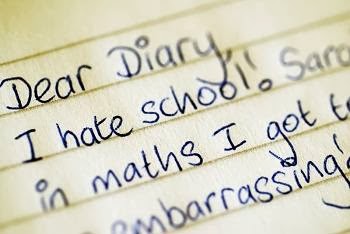 Dear Diary,
I hate school! Sara
in maths I got t
embarrassing!